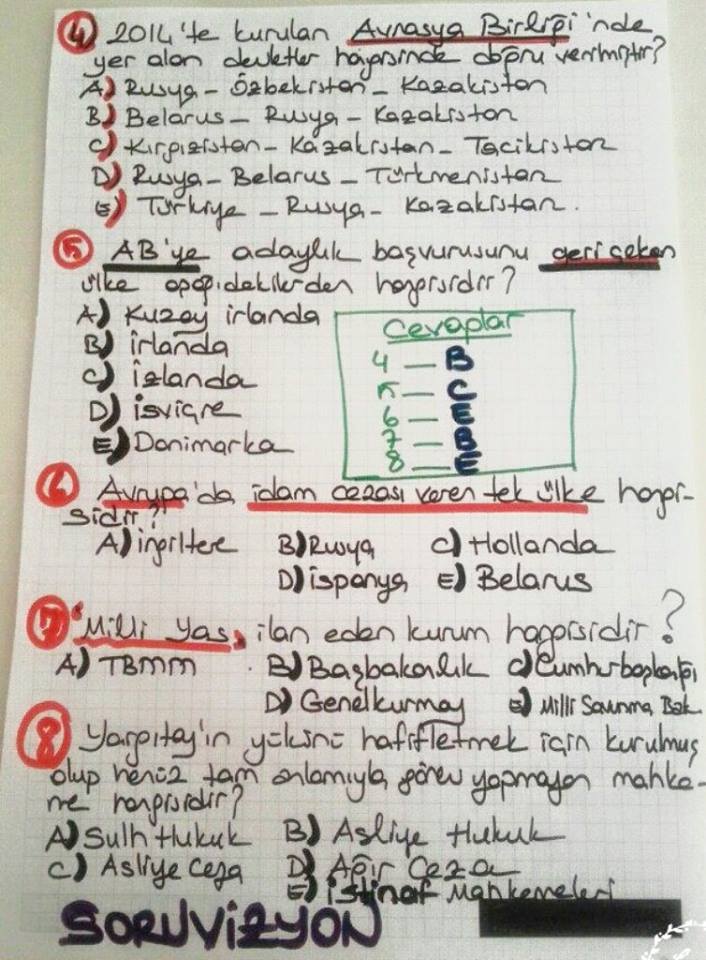 4) 2014'te kurulan Avrasya Birliği'nde
yer alan devletler hangisinde doğru verilmiştir?
A) Rusya - Özbekistan - Kazakistan
B) Belarus - Rusya - Kazakistan
C) Kırgızistan - Kazakistan - Tacikistan
D) Rusya - Belarus - Türkmenistan
E) Türkiye - Rusya - Kazakistan.
5) AB'ye adaylık başvurusunu geri çeken
ülke aşağıdakilerden hangisidir?
A) Kuzey irlanda
B) İrlanda
C) İzlanda
D) İsviçre
E) Danimarka
Cevaplar
4 — B
5 — C
6 — E
7 — B
8 — E
6) Avrupa'da idam cezası veren tek ülke hangi-
sidir?
A) ingiltere B) Rusya C) Hollanda
D) ispanya E) Belarus
7) "Milli Yas" ilan eden kurum hangisidir?
A) TBMM B) Başbakanlık C) Cumhurbaşkanlığı
D) Genelkurmay E) Milli Savunma Bak.
8) Yargıtay'ın yükünü hafifletmek için kurulmuş
olup henüz tam anlamıyla görev yapmayan mahke-
me hangisidir?
A) Sulh Hukuk B) Asliye Hukuk
C) Asliye Ceza D) Ağır Ceza
E) İstinaf Mahkemeleri
SORUVİZYON